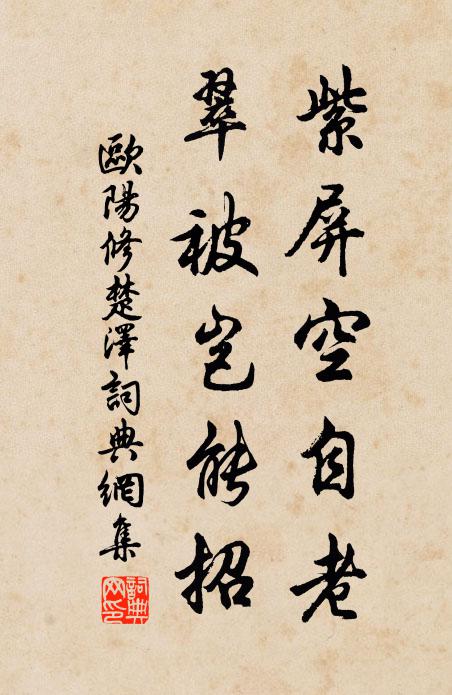 紫屏空自老
翠被豈能招
歐陽修楚澤詞典網集
詞典网印